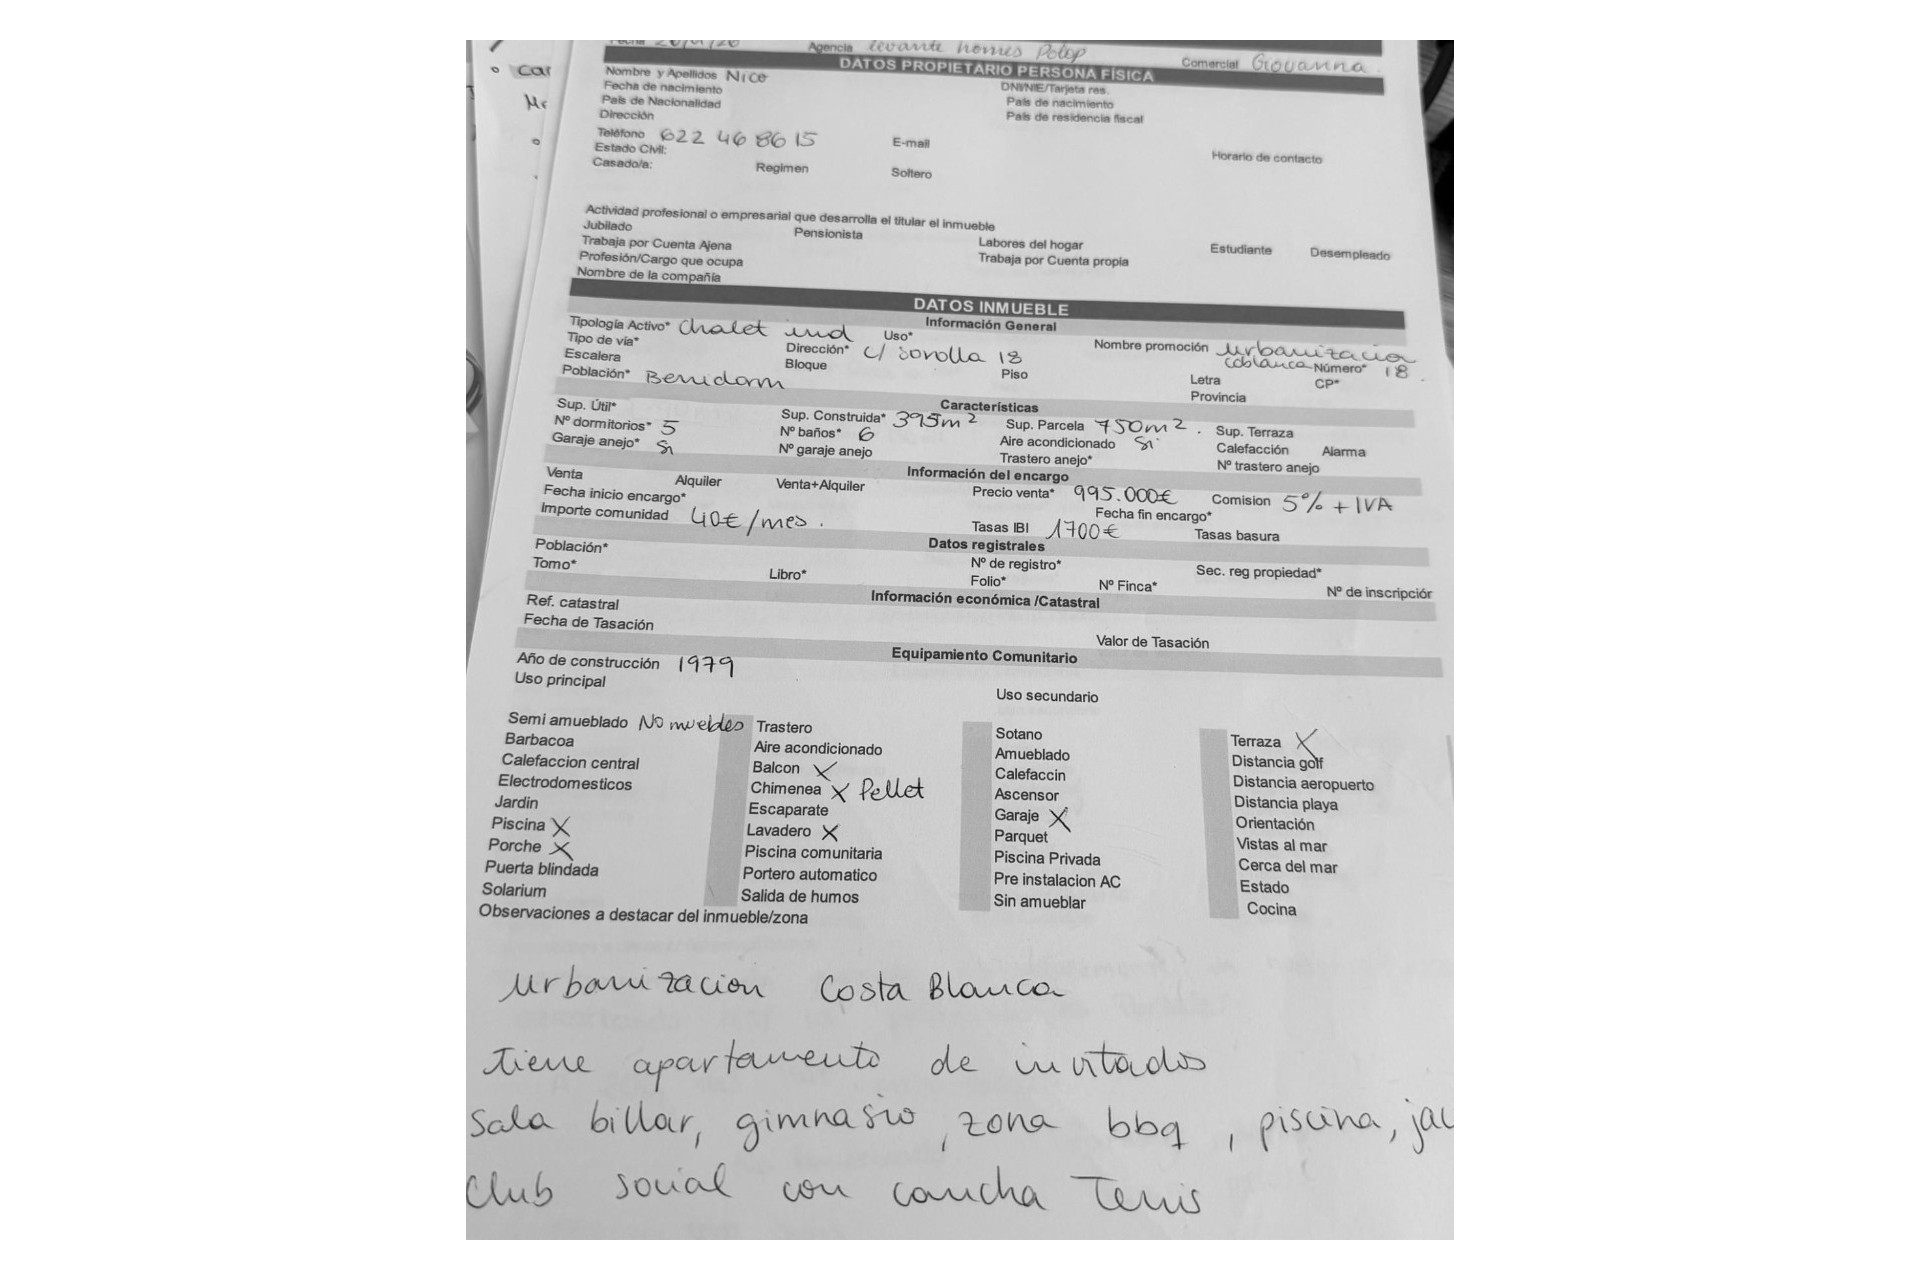 Fecha 26/01/26 Agencia Levante homes Polop Comercial Giovanna.
DATOS PROPIETARIO PERSONA FÍSICA
Nombre y Apellidos Nico DNI/NIE/Tarjeta res.
Fecha de nacimiento País de nacimiento
País de Nacionalidad País de residencia fiscal
Dirección
Teléfono 622 46 86 15 E-mail Horario de contacto
Estado Civil:
Casado/a: Regimen Soltero
Actividad profesional o empresarial que desarrolla el titular el inmueble
Jubilado Pensionista Labores del hogar Estudiante Desempleado
Trabaja por Cuenta Ajena Trabaja por Cuenta propia
Profesión/Cargo que ocupa
Nombre de la compañía
DATOS INMUEBLE
Información General
Tipología Activo* Chalet ind Uso* Nombre promoción Urbanizacion
Tipo de vía* Dirección* c/ Sorolla 18 Coblanca Número* 18.
Escalera Bloque Piso Letra CP*
Población* Benidorm Provincia
Características
Sup. Útil* Sup. Construida* 395m² Sup. Parcela 750m². Sup. Terraza
Nº dormitorios* 5 Nº baños* 6 Aire acondicionado Si Calefacción Alarma
Garaje anejo* Si Nº garaje anejo Trastero anejo* Nº trastero anejo
Información del encargo
Venta Alquiler Venta+Alquiler Precio venta* 995.000€ Comision 5% + IVA
Fecha inicio encargo* Fecha fin encargo*
Importe comunidad 40€/mes. Tasas IBI 1700€ Tasas basura
Datos registrales
Población* Nº de registro* Sec. reg propiedad*
Tomo* Libro* Folio* Nº Finca* Nº de inscripción
Información económica /Catastral
Ref. catastral
Fecha de Tasación Valor de Tasación
Equipamiento Comunitario
Año de construcción 1979
Uso principal Uso secundario
Semi amueblado No muebles Trastero Sotano Terraza X
Barbacoa Aire acondicionado Amueblado Distancia golf
Calefaccion central Balcon X Calefaccin Distancia aeropuerto
Electrodomesticos Chimenea X Pellet Ascensor Distancia playa
Jardin Escaparate Garaje X Orientación
Piscina X Lavadero X Parquet Vistas al mar
Porche X Piscina comunitaria Piscina Privada Cerca del mar
Puerta blindada Portero automatico Pre instalacion AC Estado
Solarium Salida de humos Sin amueblar Cocina
Observaciones a destacar del inmueble/zona
Urbanizacion Costa Blanca
tiene apartamento de invitados
Sala billar, gimnasio, zona bbq, piscina, jac
Club social con cancha Tenis